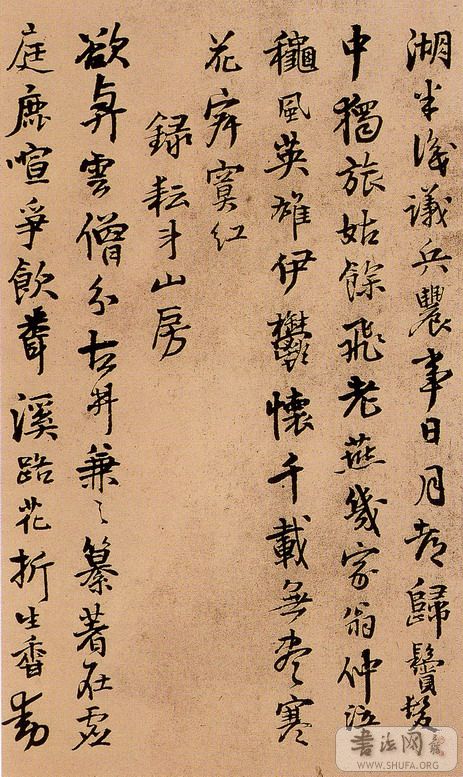 湖議兵農事日月都歸鬢髮
中獨旅姑餘飛老燕幾家翁仲泣
龝風英雄伊鬱懷千載無盡寒
花寂寞紅
錄耘斗山房
欲雲僧分古井兼纂著在虛
庭鹿喧爭飲溪路花折生香動
書法网
WWW.SHUFA.ORG